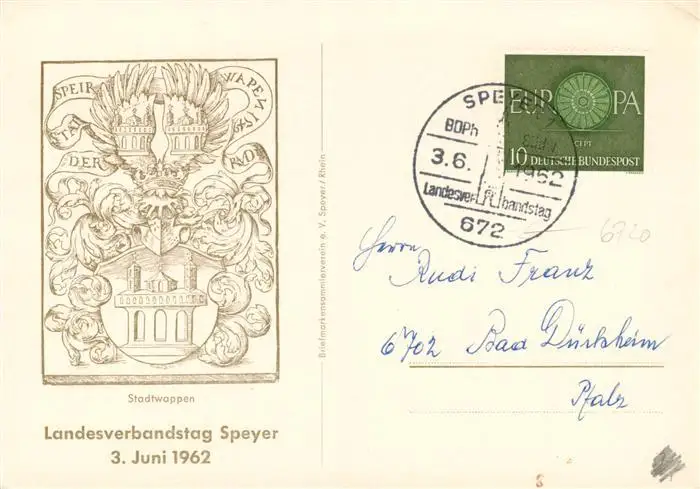 SPEIR
WAPEN
STAT
DER
Stadtwappen
Landesverbandstag Speyer
3. Juni 1962
Briefmarkensammlerverein e. V. Speyer/Rhein
EUROPA
CEPT
10 DEUTSCHE BUNDESPOST
SPEYER
BDPh
3.6. 1962
Landesverbandstag
672
6720
Herrn
Rudi Franz
6702 Bad Dürkheim
Pfalz